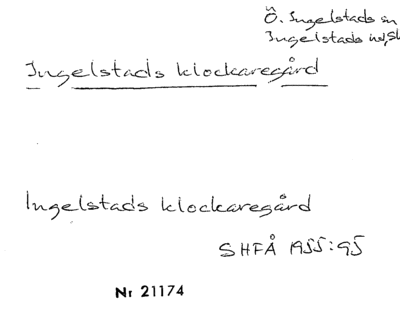 Ö. Ingelstads sn
Ingelstads hd, Sk
Ingelstads klockaregård
Ingelstads klockaregård
SHFÅ 1955:95
Nr 21174